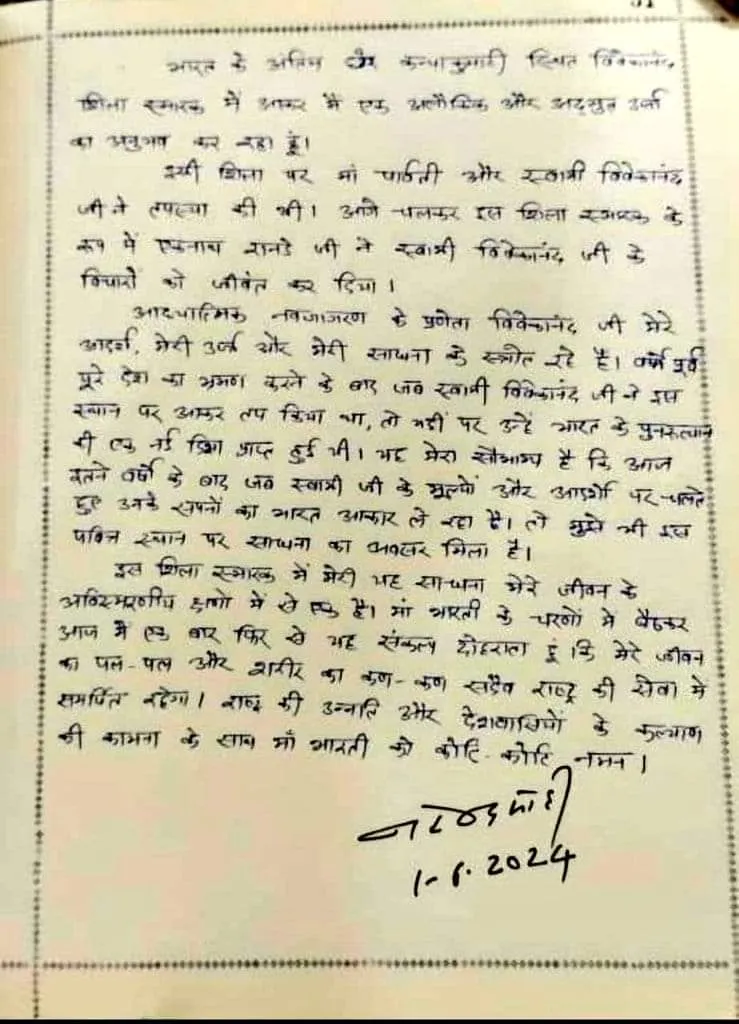 भारत के अंतिम छोर कन्याकुमारी स्थित विवेकानंद
शिला स्मारक में आकर मैं एक अलौकिक और अद्भुत उर्जा
का अनुभव कर रहा हूं।
इसी शिला पर मां पार्वती और स्वामी विवेकानंद
जी ने तपस्या की थी। आगे चलकर इस शिला स्मारक के
रूप में एकनाथ रानडे जी ने स्वामी विवेकानंद जी के
विचारों को जीवंत कर दिया।
आध्यात्मिक नवजागरण के प्रणेता विवेकानंद जी मेरे
आदर्श, मेरी उर्जा और मेरी साधना के स्त्रोत रहे है। वर्षों पूर्व
पूरे देश का भ्रमण करने के बाद जब स्वामी विवेकानंद जी ने इस
स्थान पर आकर तप किया था, तो यहीं पर उन्हें भारत के पुनरुत्थान
की एक नई दिशा प्राप्त हुई थी। यह मेरा सौभाग्य है कि आज
इतने वर्षों के बाद जब स्वामी जी के मूल्यों और आदर्शों पर चलते
हुए उनके सपनों का भारत आकार ले रहा है। तो मुझे भी इस
पवित्र स्थान पर साधना का अवसर मिला है।
इस शिला स्मारक में मेरी यह साधना मेरे जीवन के
अविस्मरणीय क्षणों में से एक है। मां भारती के चरणों मे बैठकर
आज मैं एक बार फिर से यह संकल्प दोहराता हूं कि मेरे जीवन
का पल-पल और शरीर का कण-कण सदैव राष्ट्र की सेवा मे
समर्पित रहेगा। राष्ट्र की उन्नति और देशवासियों के कल्याण
की कामना के साथ मां भारती को कोटि-कोटि नमन।
नरेन्द्र मोदी
1-6.2024